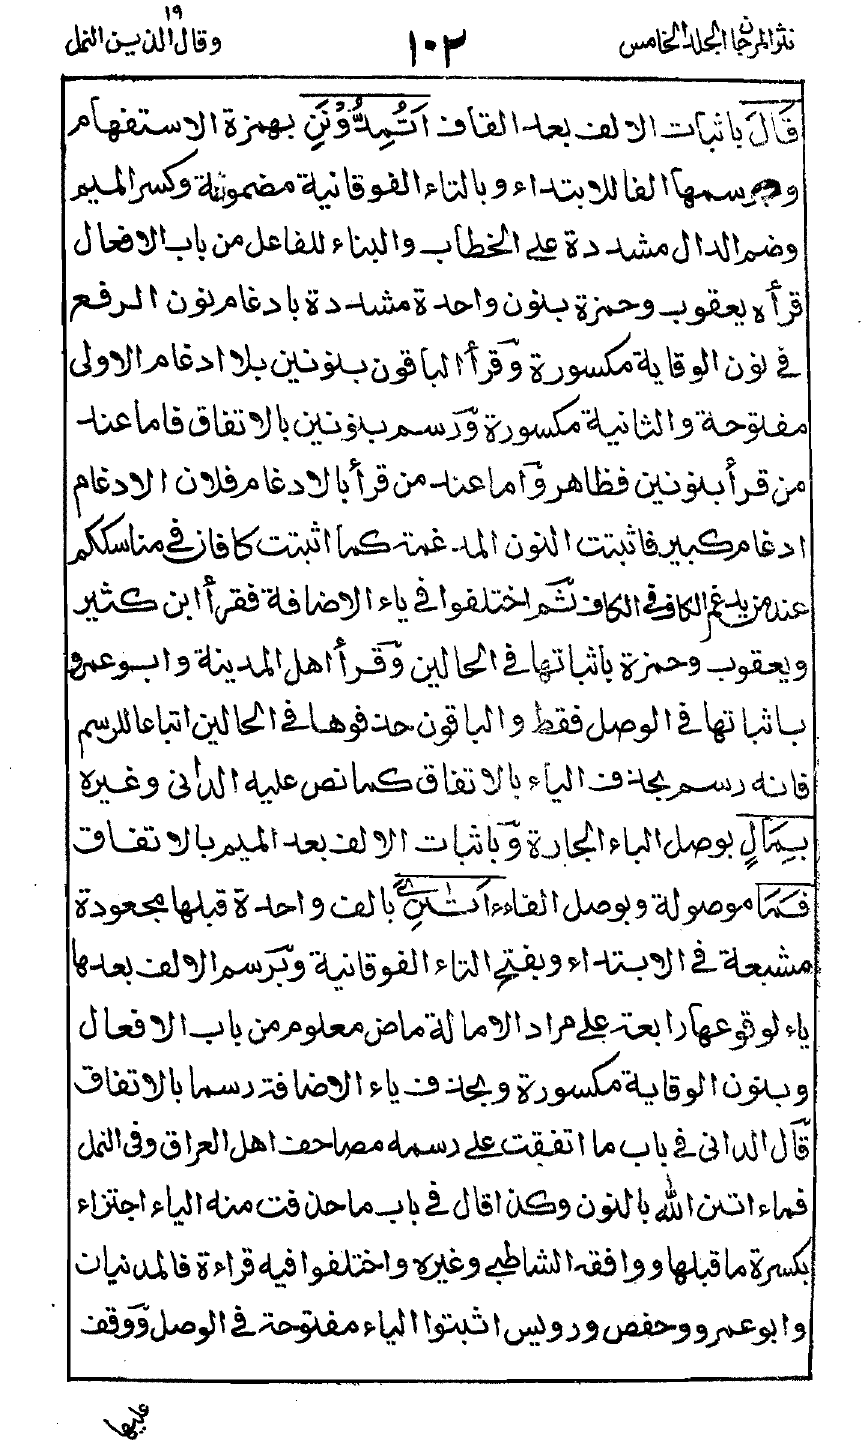 نثر المرجان المجلد الخامس
١٠٢
١٩
وقال الذين النمل
قَالَ باثبات الالف بعد القاف اَتُمِدُّوْنَنِ بهمزة الاستفهام
وبرسمها الفا للابتداء وبالتاء الفوقانية مضمومة وكسر الميم
وضم الدال مشددة على الخطاب والبناء للفاعل من باب الافعال
قرأه يعقوب وحمزة بنون واحدة مشددة بادغام نون الرفع
فى نون الوقاية مكسورة وقرأ الباقون بنونين بلا ادغام الاولى
مفتوحة والثانية مكسورة ورسم بنونين بالاتفاق فاما عند
من قرأ بنونين فظاهر واما عند من قرأ بالادغام فلان الادغام
ادغام كبير فاثبتت النون المدغمة كما اثبتت كافان فى مناسككم
عند من يدغم الكاف فى الكاف ثم اختلفوا فى ياء الاضافة فقرأ ابن كثير
ويعقوب وحمزة باثباتها فى الحالين وقرأ اهل المدينة وابو عمرو
باثباتها فى الوصل فقط والباقون حذفوها فى الحالين اتباعا للرسم
فانه رسم بحذف الياء بالاتفاق كما نص عليه الدانى وغيره
بِمَالٍ بوصل الباء الجارة وباثبات الالف بعد الميم بالاتفاق
فَمَا موصولة وبوصل الفاء ءاَتٰىنِ بالف واحدة قبلها مجعودة
مشبعة فى الابتداء وبفتح التاء الفوقانية وبرسم الالف بعدها
ياء لوقوعها رابعة على مراد الامالة ماض معلوم من باب الافعال
وبنون الوقاية مكسورة وبحذف ياء الاضافة رسما بالاتفاق
قال الدانى فى باب ما اتفقت على رسمه مصاحف اهل العراق وفى النمل
فماء اتىن الله بالنون وكذا قال فى باب ما حذفت منه الياء اجتزاء
بكسرة ما قبلها ووافقه الشاطبى وغيره واختلفوا فيه قراءة فالمدنيان
وابو عمرو وحفص ورويس اثبتوا الياء مفتوحة فى الوصل ووقف
عليها